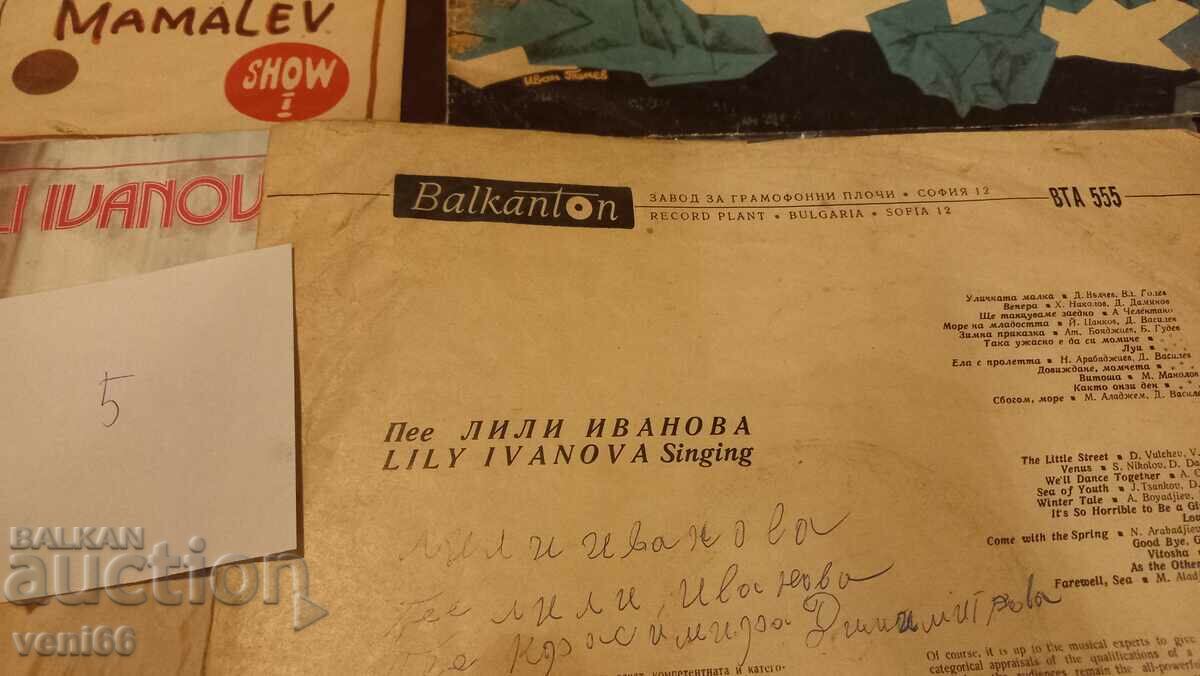 MAMALEV
SHOW
I IVANOV
Иван
5
Balkanton
ЗАВОД ЗА ГРАМОФОННИ ПЛОЧИ • СОФИЯ 12
RECORD PLANT • BULGARIA • SOFIA 12
ВТА 555
Уличката малка ■ Д. Вълчев, Вл. Голев
Венера ■ Х. Николов, Д. Дамянов
Ще танцуваме заедно ■ А Челентано
Море на младостта ■ Й. Цанков, Д. Василев
Зимна приказка ■ Ат. Бояджиев, Б. Гудев
Така ужасно е да си момиче ■
Луи ■
Ела с пролетта ■ Н. Арабаджиев, Д. Василев
Довиждане, момчета ■
Витоша ■ М. Манолов
Както онзи ден ■
Сбогом, море ■ М. Аладжем, Д. Васил
Пее ЛИЛИ ИВАНОВА
LILY IVANOVA Singing
The Little Street ■ D. Vulchev, V.
Venus ■ S. Nikolov, D. Da
We'll Dance Together ■ A. C
Sea of Youth ■ J. Tsankov, D.
Winter Tale ■ A. Boyadjiev,
It's So Horrible to Be a Gi
Lou
Come with the Spring ■ N. Arabadjiev
Good Bye, G
Vitosha ■
As the Other
Farewell, Sea ■ M. Alad
Лили Иванова
Пее Лили Иванова
Пе Красимира Димитрова
компетентната и катего-
Of course, it is up to the musical experts to give
categorical appraisals of the qualifications of a
audiences remain the all-powerful
BALKAN
auction
veni66